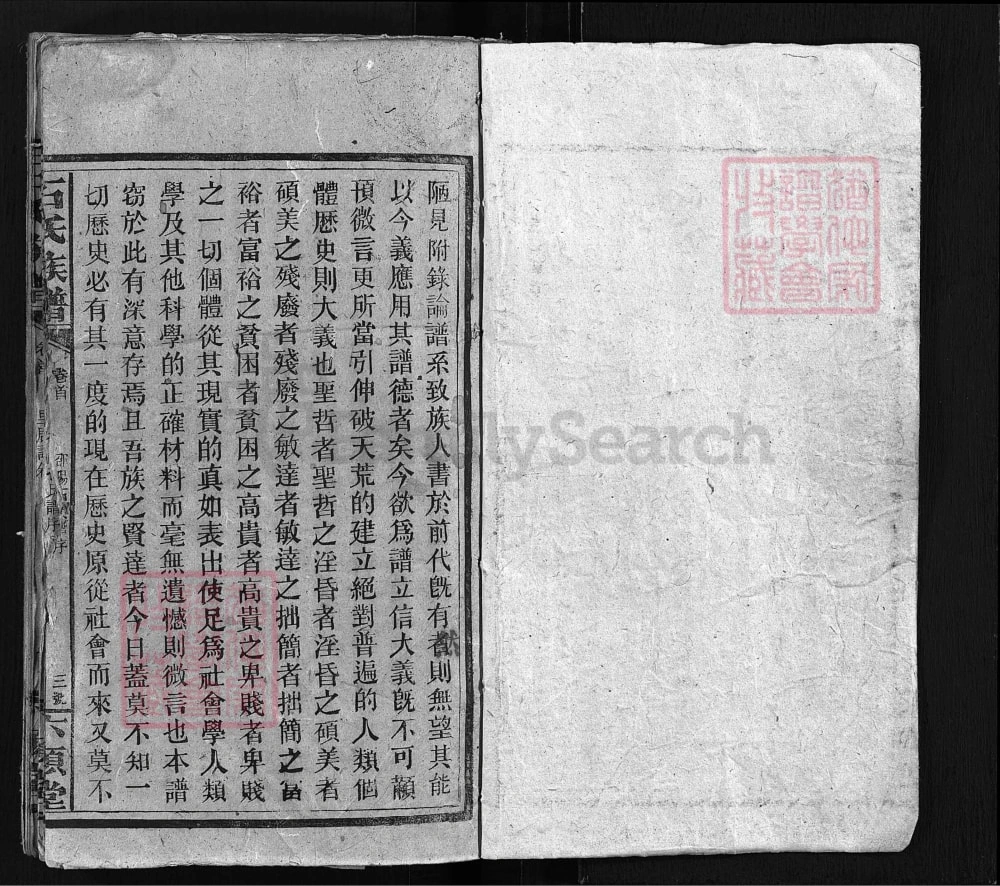 陋見附錄論譜系致族人書於前代旣有者則無望其能
以今義應用其譜德者矣今欲爲譜立信大義旣不可顢
頇微言更所當引伸破天荒的建立絕對普遍的人類個
體歷史則大義也聖哲者聖哲之淫昏者淫昏之碩美者
碩美之殘廢者殘廢之敏達者敏達之拙簡者拙簡之富
裕者富裕之貧困者貧困之高貴者高貴之卑賤者卑賤
之一切個體從其現實的真如表出使足爲社會學人類
學及其他科學的正確材料而毫無遺憾則微言也本譜
窃於此有深意存焉且吾族之賢達者今日蓋莫不知一
切歷史必有其一度的現在歷史原從社會而來又莫不
石氏族譜
卷首
三號
六順堂
FamilySearch